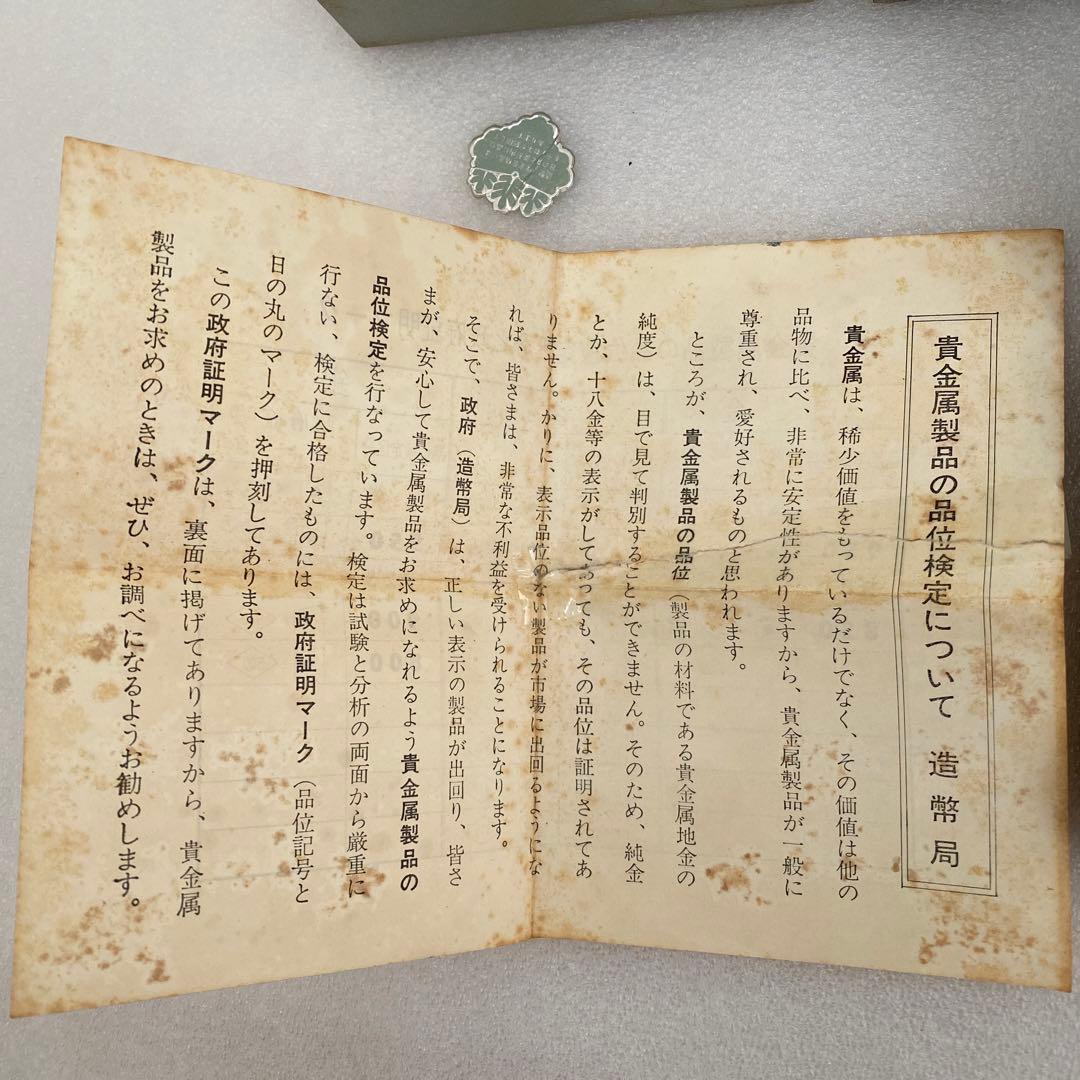 貴金属製品の品位検定について 造幣局
貴金属は、稀少価値をもっているだけでなく、その価値は他の
品物に比べ、非常に安定性がありますから、貴金属製品が一般に
尊重され、愛好されるものと思われます。
ところが、貴金属製品の品位（製品の材料である貴金属地金の
純度）は、目で見て判別することができません。そのため、純金
とか、十八金等の表示がしてあっても、その品位は証明されてあ
りません。かりに、表示品位のない製品が市場に出回るようにな
れば、皆さまは、非常な不利益を受けられることになります。
そこで、政府（造幣局）は、正しい表示の製品が出回り、皆さ
まが、安心して貴金属製品をお求めになれるよう貴金属製品の
品位検定を行なっています。検定は試験と分析の両面から厳重に
行ない、検定に合格したものには、政府証明マーク（品位記号と
日の丸のマーク）を押刻してあります。
この政府証明マークは、裏面に掲げてありますから、貴金属
製品をお求めのときは、ぜひ、お調べになるようお勧めします。